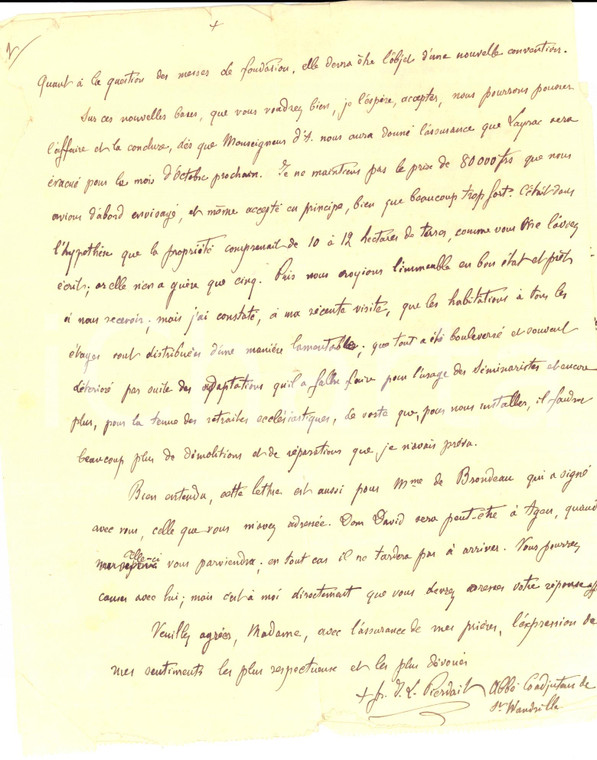 2/
+
Quant à la question des messes de fondation, elle devra être l'objet d'une nouvelle convention.
Sur ces nouvelles bases, que vous voudrez bien, je l'espère, accepter, nous pourrons pousser
l'affaire et la conclure, dès que Monseigneur d'A. nous aura donné l'assurance que Layrac sera
évacué pour le mois d'Octobre prochain. Je ne maintiens pas le prix de 80000 frs que nous
avions d'abord envisagé, et même accepté en principe, bien que beaucoup trop fort. C'était dans
l'hypothèse que la propriété comprenait de 10 à 12 hectares de terres, comme vous me l'aviez
écrit; or elle n'en a guère que cinq. Puis nous croyions l'immeuble en bon état et prêt
à nous recevoir; mais j'ai constaté, à ma récente visite, que les habitations à tous les
étages sont distribuées d'une manière lamentable, que tout a été bouleversé et souvent
détérioré par suite des adaptations qu'il a fallu faire pour l'usage des Séminaristes et encore
plus, pour la tenue des retraites ecclésiastiques, de sorte que, pour nous installer, il faudra
beaucoup plus de démolitions et de réparations que je n'avais prévu.
Bien entendu, cette lettre est aussi pour Mme de Brondeau qui a signé
avec vous, celle que vous m'avez adressée. Dom David sera peut-être à Agen, quand
celle-ci vous parviendra; en tout cas il ne tardera pas à arriver. Vous pourrez
causer avec lui; mais c'est à moi directement que vous devrez adresser votre réponse
Veuillez agréer, Madame, avec l'assurance de mes prières, l'expression de
mes sentiments les plus respectueux et les plus dévoués
+ fr. J. L. Pierdait Abbé Coadjuteur de
St Wandrille